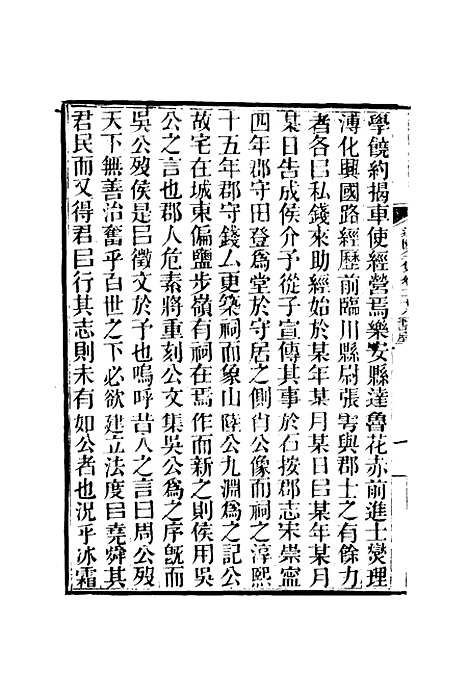 學饒約揭車使經營焉樂安縣達魯花赤前進士燮理
溥化興國路經歷前臨川縣尉張雩與郡士之有餘力
者各㠯私錢來助經始於某年某月某日㠯某年某月
某日告成侯介予從子宣傳其事於石按郡志宋崇寧
四年郡守田登爲堂於守居之側肖公像而祠之淳熙
十五年郡守錢厶更築祠而象山陸公九淵爲之記公
故宅在城東偏鹽步嶺有祠在焉作而新之則侯用吳
公之言也郡人危素將重刻公文集吳公爲之序旣而
吳公歿侯是㠯徵文於予也嗚呼昔人之言曰周公歿
天下無善治奮乎百世之下必欲建立法度㠯堯舜其
君民而又得君㠯行其志則未有如公者也況乎冰霜